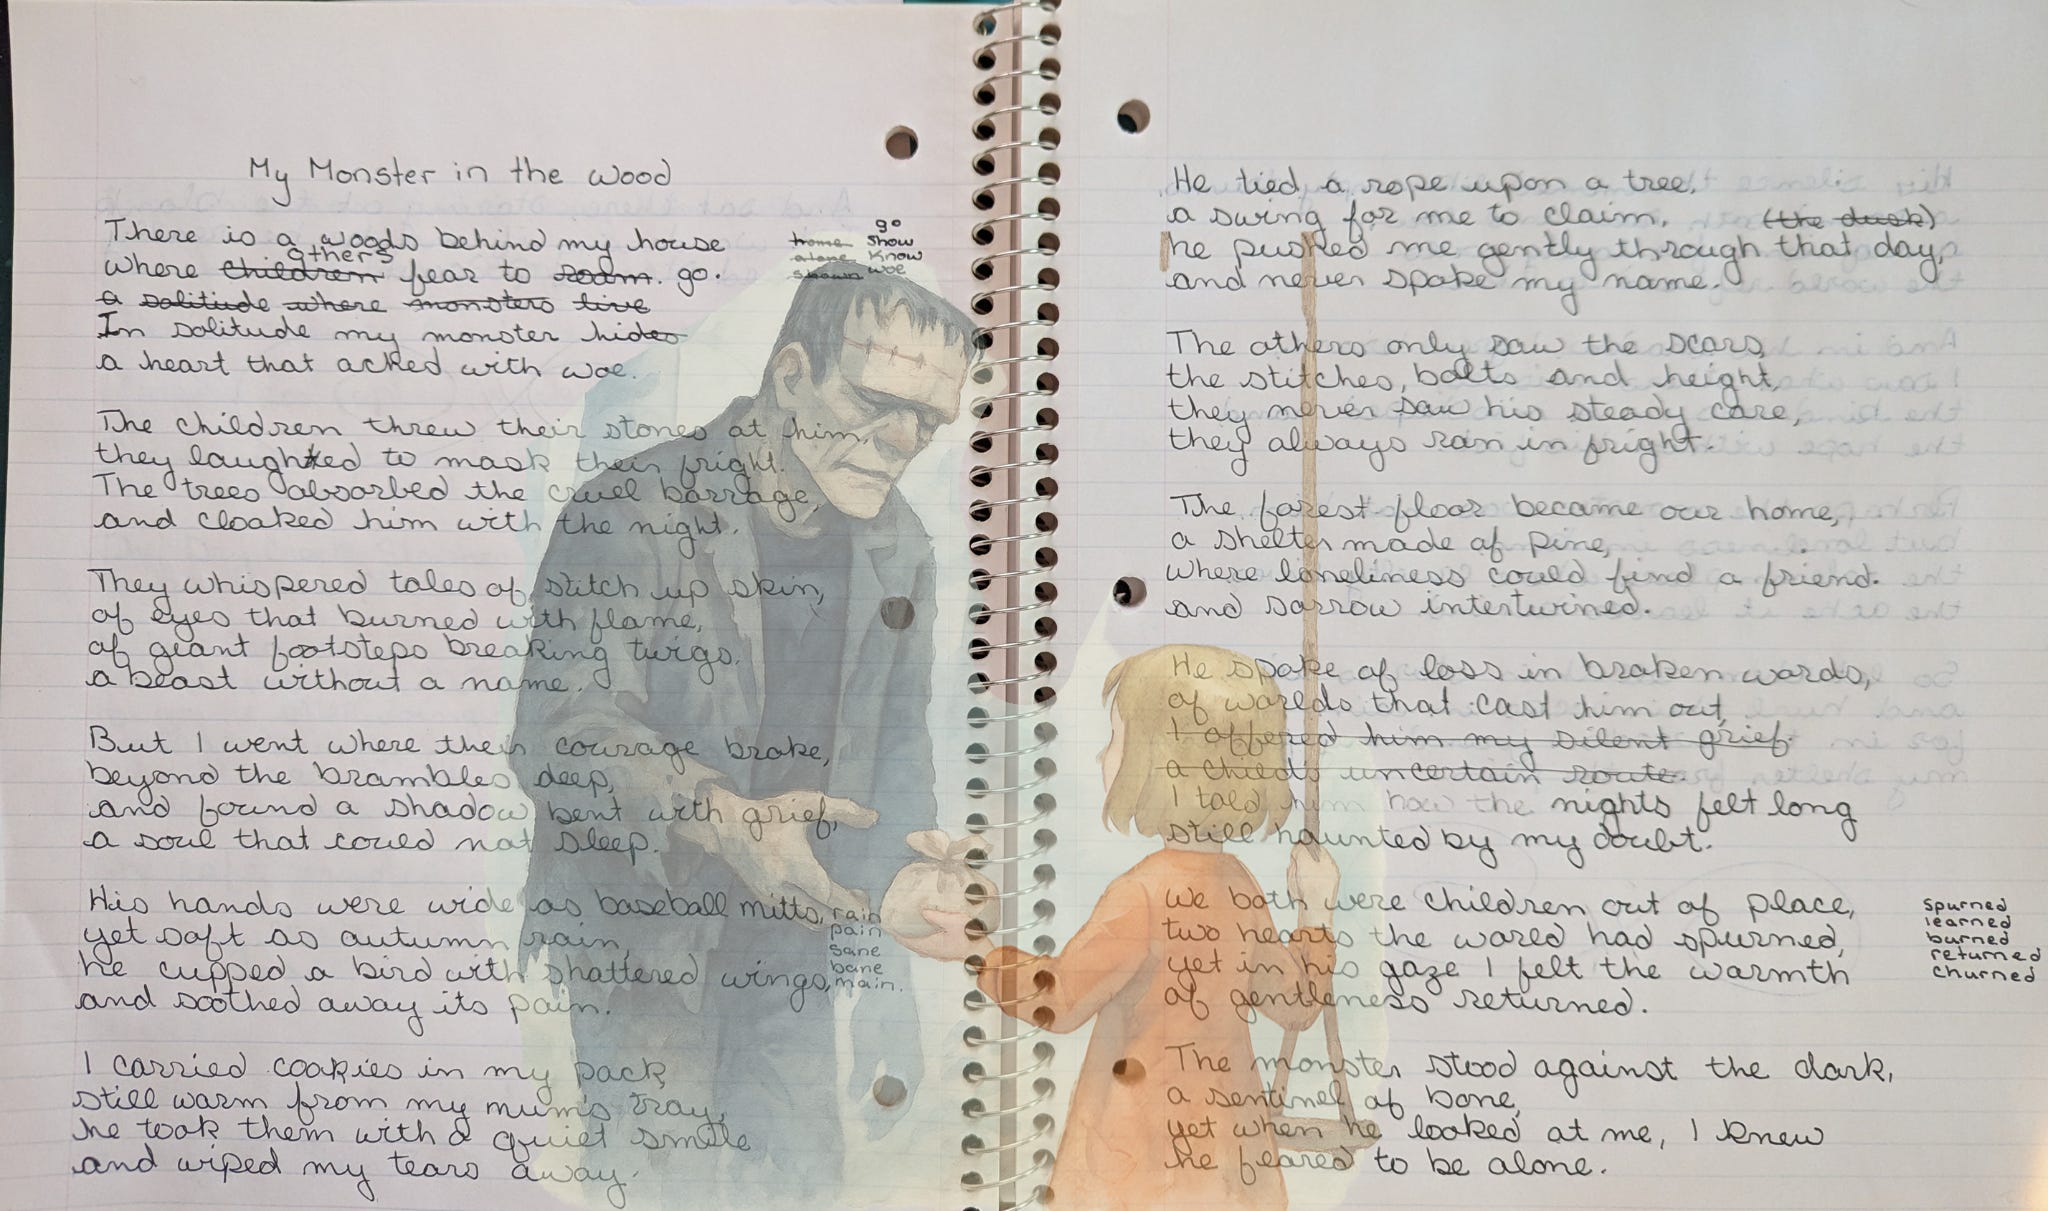 My Monster in the wood
There is a woods behind my house
others
where children fear to roam. go.
a solitude where monsters live
In solitude my monster hides
a heart that acked with woe.
go
home show
alone know
shown woe
The children threw their stones at him,
they laughted to mask their fright.
The trees absorbed the cruel barrage,
and cloaked him with the night.
They whispered tales of stitch up skin,
of eyes that burned with flame,
of geant footsteps breaking twigs,
a beast without a name.
But I went where their courage broke,
beyond the brambles deep,
and found a shadow bent with grief,
a soul that could not sleep.
His hands were wide as baseball mitts,
yet soft as autumn rain,
he cupped a bird with shattered wings,
and soothed away its pain.
rain
pain
sane
bane
main.
I carried cookies in my pack
still warm from my mum's tray,
he took them with a quiet smile
and wiped my tears away.
He tied a rope upon a tree,
a swing for me to claim, (the dusk)
he pushed me gently through that day,
and never spoke my name.
The others only saw the scars,
the stitches, bolts and height,
they never saw his steady care,
they always ran in fright.
The forest floor became our home,
a shelter made of pine,
where loneliness could find a friend.
and sorrow intertwined.
He spoke of loss in broken words,
of worlds that cast him out,
I offered him my silent grief
a child's uncertain route.
I told him how the nights felt long
still haunted by my doubt.
we both were children out of place,
two hearts the world had spurned,
yet in his gaze I felt the warmth
of gentleness returned.
spurned
learned
burned
returned
churned
The monster stood against the dark,
a sentinel of bone,
yet when he looked at me, I knew
he feared to be alone.